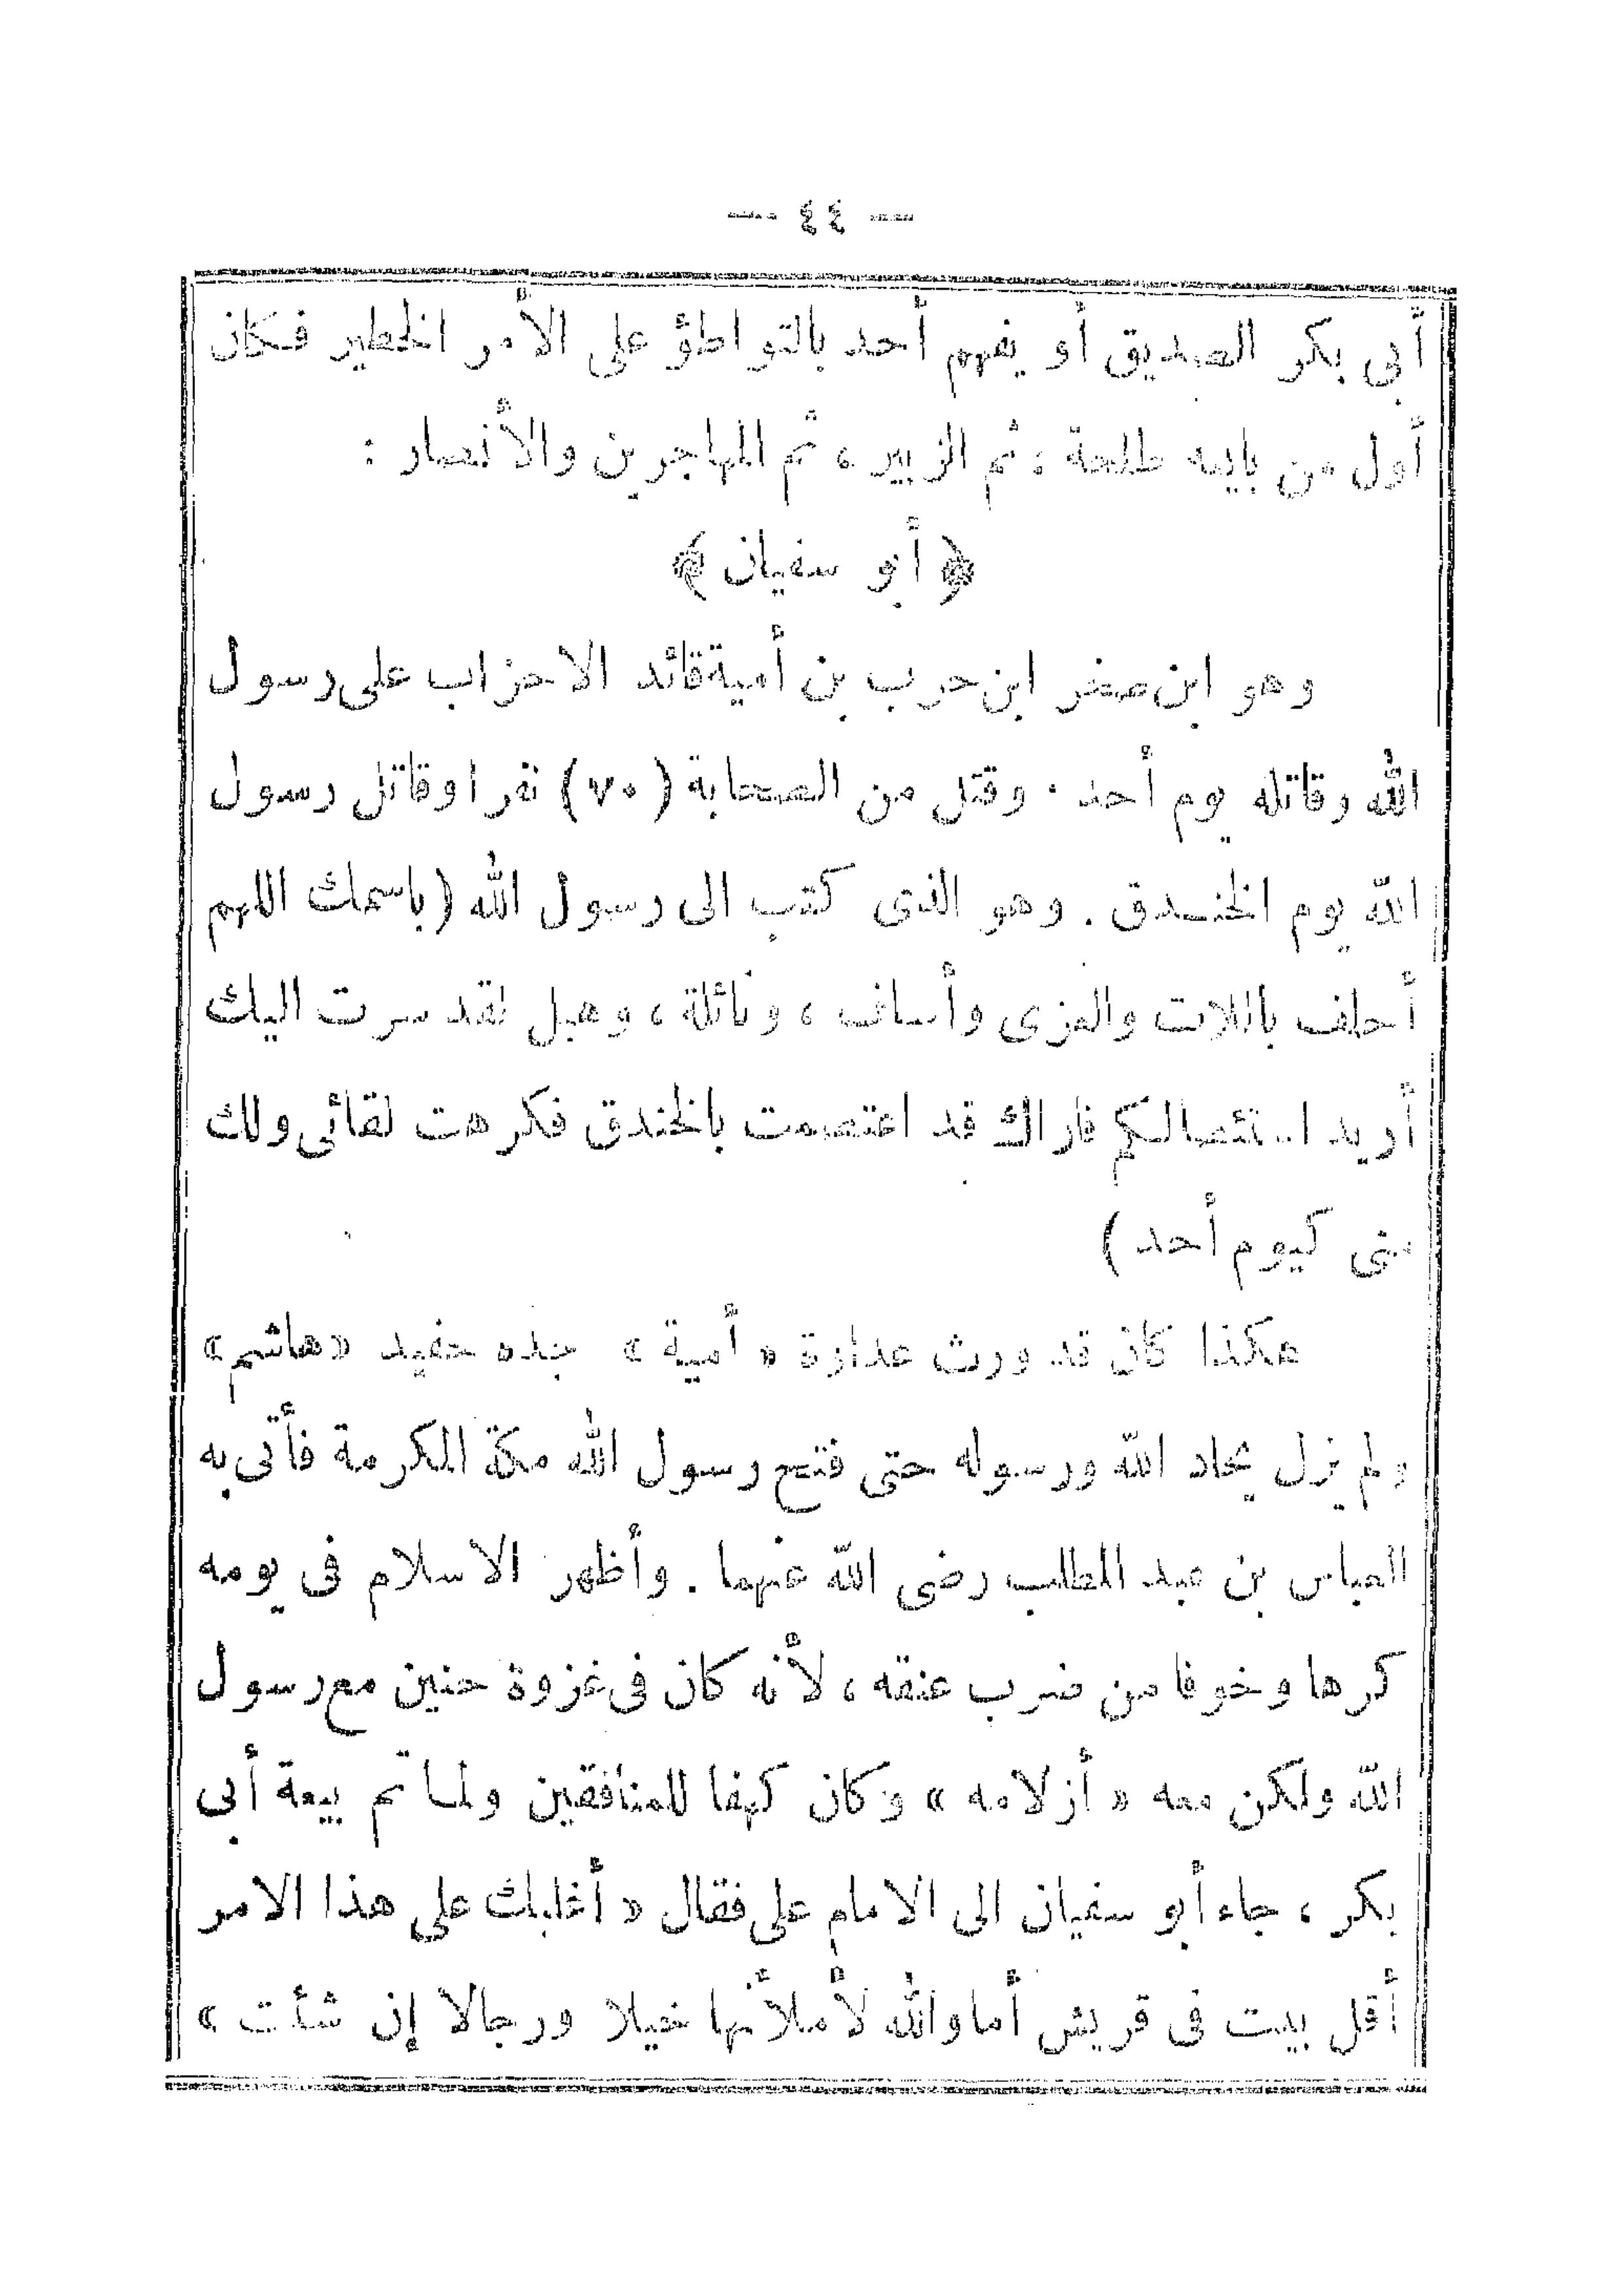 — ٤٤ —
أبى بكر الصديق أو يفهم أحد بالتواطؤ على الأمر الخطير فكان
أول من بايعه طلحة ، ثم الزبير ، ثم المهاجرين والأنصار :
﴿ أبو سفيان ﴾
وهو ابن صخر ابن حرب بن أمية قائد الاحزاب على رسول
الله وقاتله يوم أحد . وقتل من الصحابة (٧٠) نفرا وقاتل رسول
الله يوم الخندق . وهو الذى كتب الى رسول الله (باسمك اللهم
أحلف باللات والعزى وأساف ، ونائلة ، وهبل لقد سرت اليك
أريد استئصالكم فاراك قد اعتصمت بالخندق فكرهت لقائى ولك
منى كيوم أحد )
هكذا كان قد ورث عداوة « أمية » جده حفيد «هاشم»
ولم يزل يحاد الله ورسوله حتى فتح رسول الله مكة المكرمة فأتى به
العباس بن عبد المطلب رضى الله عنهما . وأظهر الاسلام فى يومه
كرها وخوفا من ضرب عنقه ، لأنه كان فى غزوة حنين مع رسول
الله ولكن معه « أزلامه » وكان كهفا للمنافقين ولما تم بيعة أبى
بكر ، جاء أبو سفيان الى الامام على فقال « أغلبك على هذا الامر
أقل بيت فى قريش أما والله لأملأنها خيلا ورجالا إن شئت »